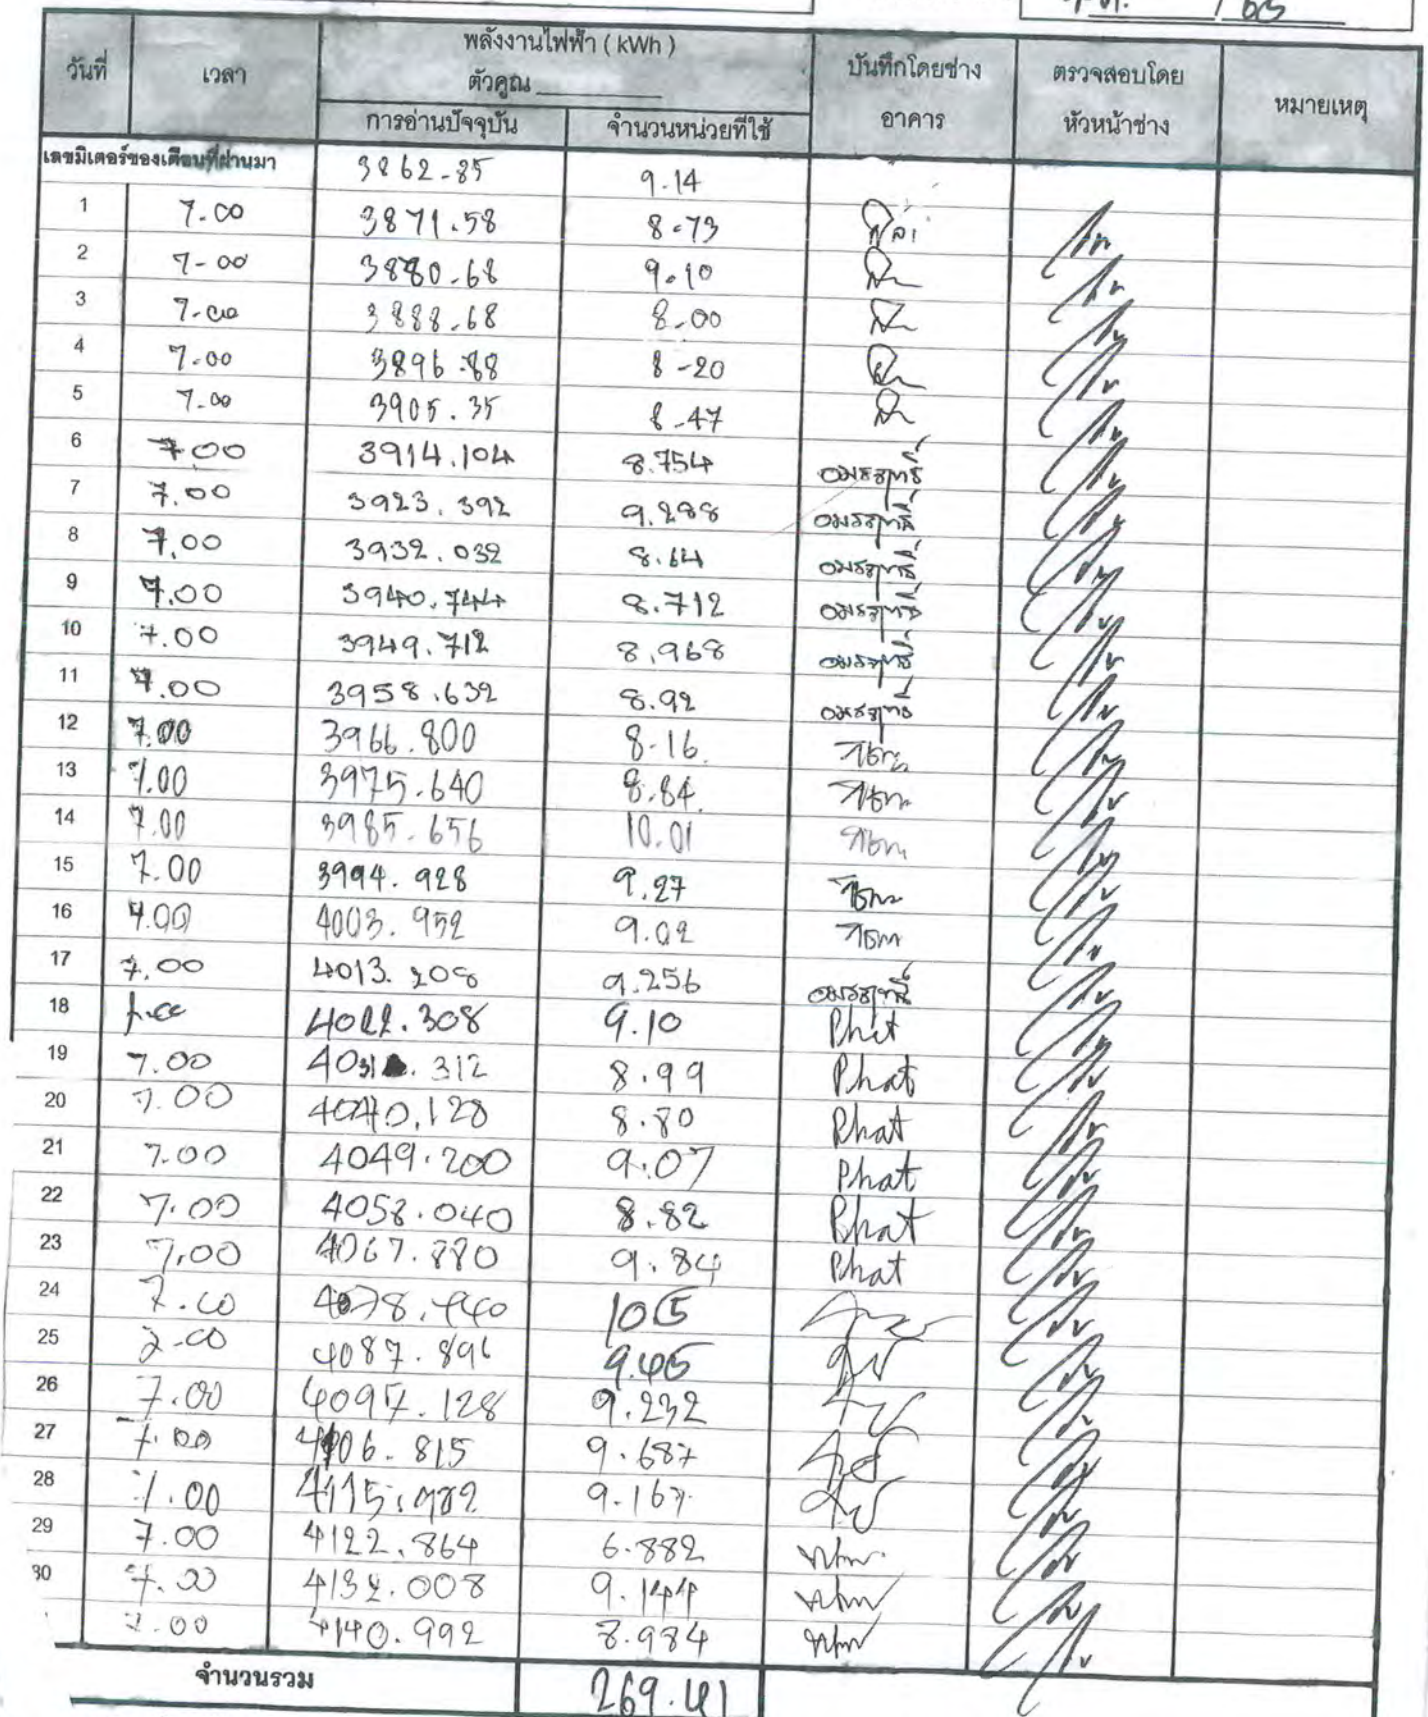 / 65
วันที่ เวลา พลังงานไฟฟ้า ( kWh ) บันทึกโดยช่าง ตรวจสอบโดย หมายเหตุ
ตัวคูณ
การอ่านปัจจุบัน จำนวนหน่วยที่ใช้ อาคาร หัวหน้าช่าง
เลขมิเตอร์ของเดือนที่ผ่านมา 3862-85 9.14
1 7.00 3871.58 8-73
2 7-00 3880.68 9.10
3 7.00 3888.68 8.00
4 7.00 3896.88 8-20
5 7.00 3905.35 8.47
6 7.00 3914.104 8.754 อมรฤทธิ์
7 7.00 3923.392 9.288 อมรฤทธิ์
8 7.00 3932.032 8.64 อมรฤทธิ์
9 7.00 3940.744 8.712 อมรฤทธิ์
10 7.00 3949.712 8.968 อมรฤทธิ์
11 7.00 3958.632 8.92 อมรฤทธิ์
12 7.00 3966.800 8.16
13 7.00 3975.640 8.84
14 7.00 3985.656 10.01
15 7.00 3994.928 9.27
16 7.00 4003.952 9.02
17 7.00 4013.208 9.256 อมรฤทธิ์
18 4022.308 9.10 Phat
19 7.00 4031.312 8.99 Phat
20 7.00 4040.128 8.80 Phat
21 7.00 4049.200 9.07 Phat
22 7.00 4058.040 8.82 Phat
23 7.00 4067.880 9.84 Phat
24 7.00 4078.440
25 4087.896
26 7.00 4097.128 9.232
27 7.00 4106.815 9.687
28 7.00 4115.982 9.167
29 7.00 4122.864 6.882
30 7.00 4132.008 9.144
7.00 4140.992 8.984
จำนวนรวม 269.41